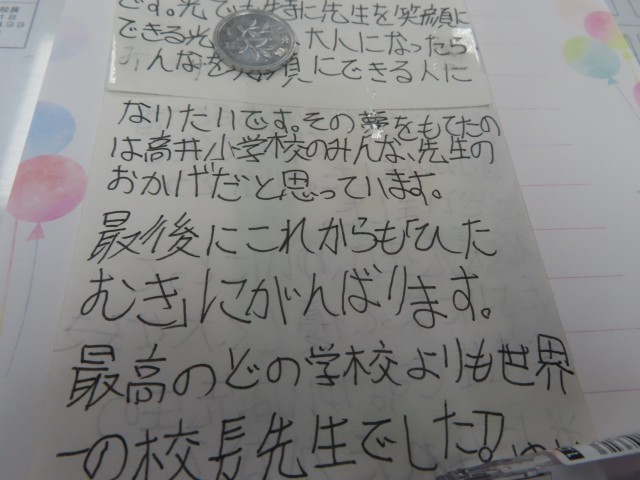 です。光でも特に先生を笑顔に
できる光 大人になったら
みんなを笑顔にできる人に
なりたいです。その夢をもてたの
は高井小学校のみんな、先生の
おかげだと思っています。
最後にこれからも「ひた
むき」にがんばります。
最高のどの学校よりも世界
一の校長先生でした!!